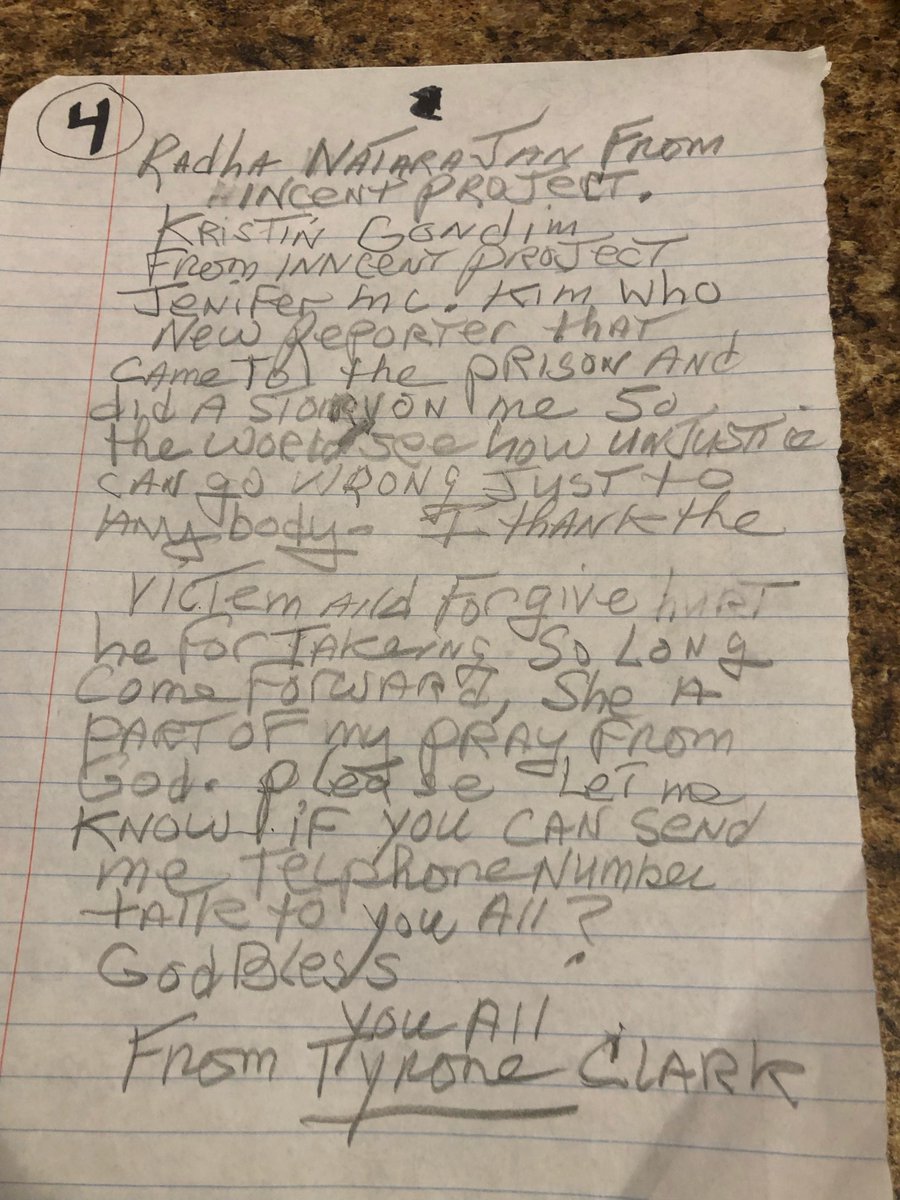 4
Radha NATARAJAN From
INCENT PROJECT.
KRISTIN Gondim
From INNCENT PROJECT
JeniFer mc. Kim Who
New Reporter that
CAme To the PRISON And
did A STORY ON me So
the World see how unJustice
CAN go WRONg JusT to
Any body. I thANK the
VICTem And Forgive hurT
he For TAKeing So LONg
Come ForwARd, She A
PART OF my PRAY From
God. please LeT me
KNOW, iF you CAN Send
me TelphoneNumber
tAlk to you All?
God Bless
you All
From Tyrone CLARK